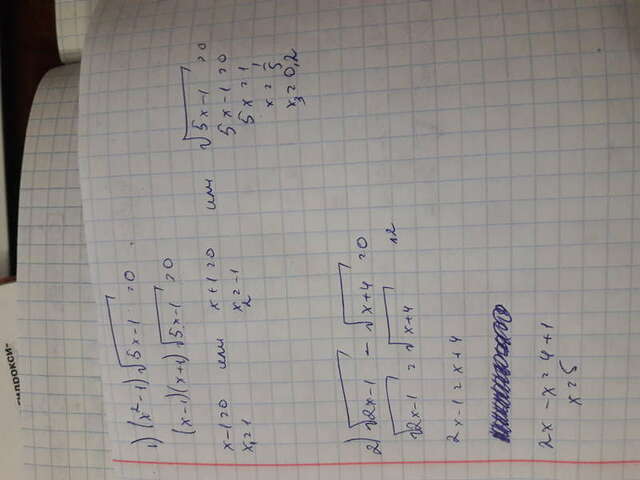 1) (x²-1)√5x-1 = 0
(x-1)(x+1)√5x-1 = 0
x-1=0 или x+1=0 или √5x-1 = 0
x₁=1 x₂=-1 5x-1=0
5x=1
x=1/5
x₃=0,2
2) √2x-1 - √x+4 = 0
√2x-1 = √x+4 |²
2x-1=x+4
2x-x=4+1
x=5